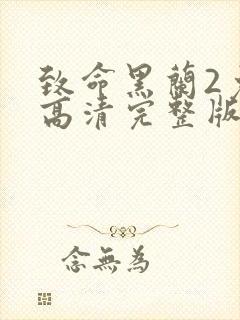 致命黑蘭2
高清完整版
念無為